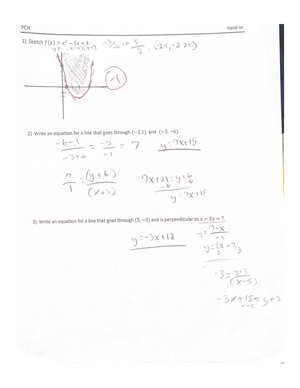 PCH
Hand-In
1) Sketch f(x) > x² – 5x + 4
y > (x-4)(x-1)
5/2, (2.5, -2.25)
-1
2) Write an equation for a line that goes through (−2,1) and (−3,−6).
-6-1/-3+2 = -7/-1 = 7
y=7x+15
7/1 = (y+6)/(x+3)
7x+21=y+6
-6 -6
y=7x+15
3) Write an equation for a line that goes through (5,−3) and is perpendicular to x − 3y = 7.
y=-3x+12
-3 = y+3/(x-5)
-3x+15=y+3